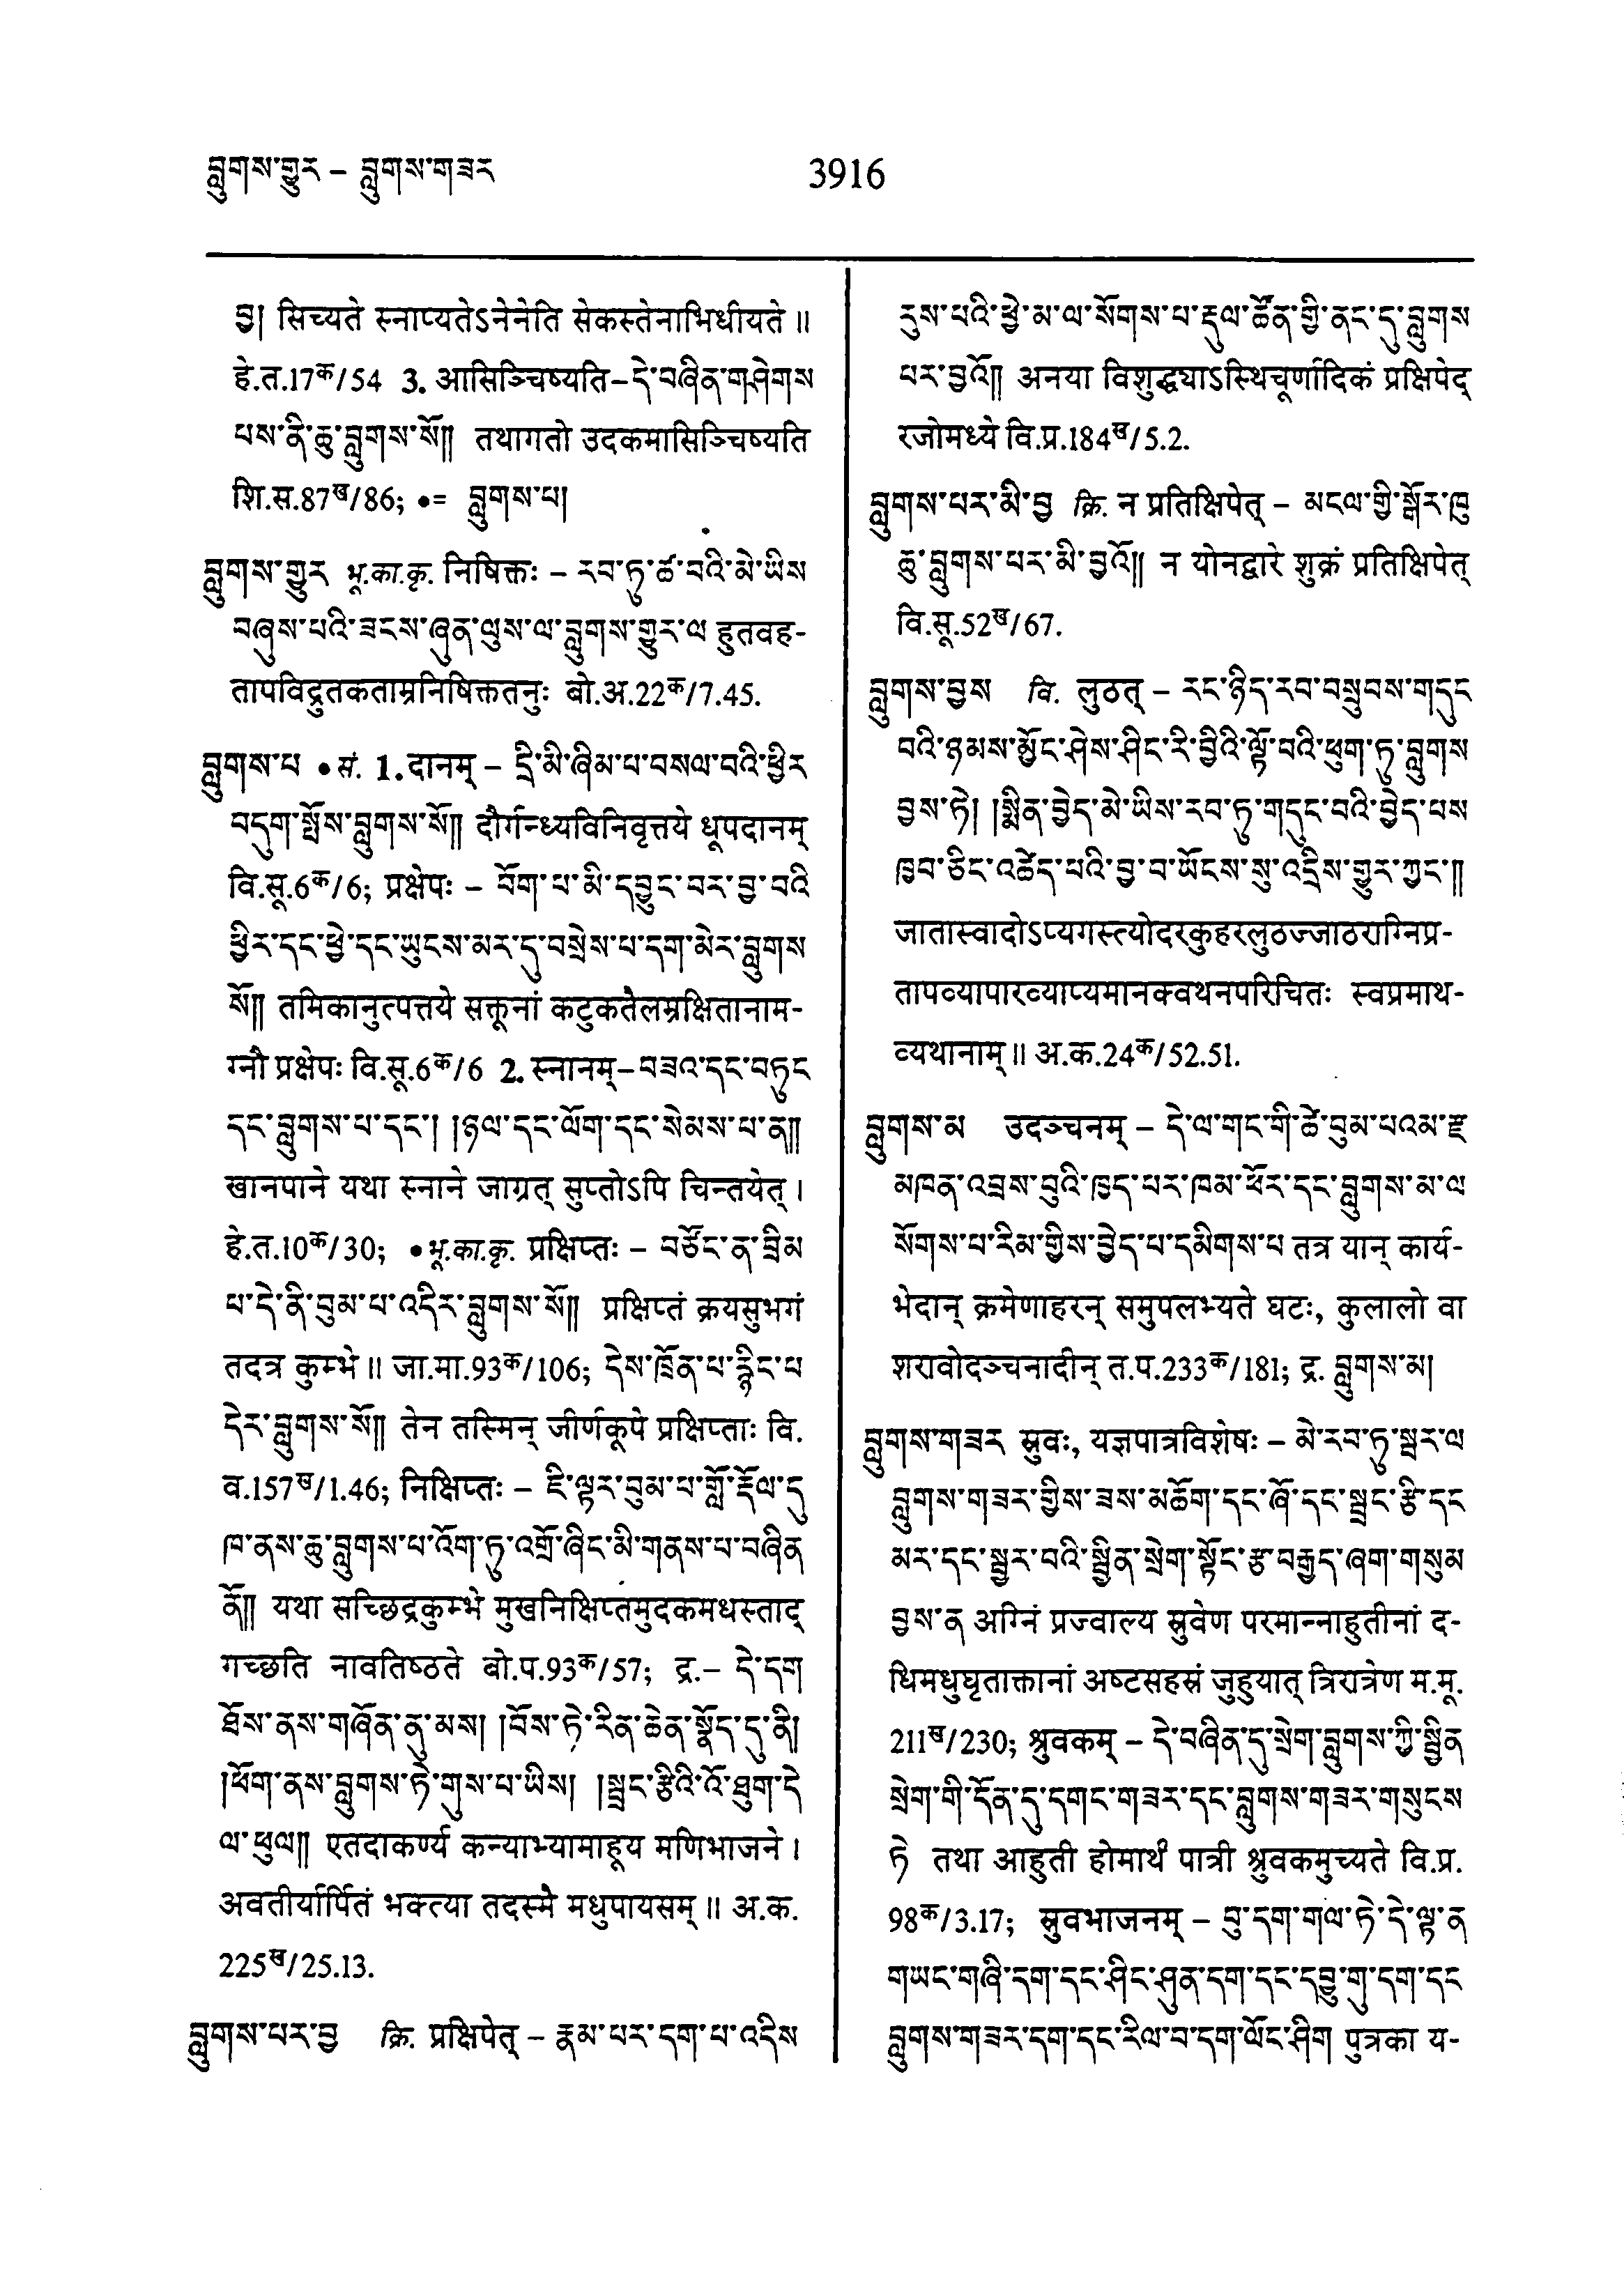 བླུགས་གྱུར – བླུགས་གཟར
3916
བྱ། सिच्यते स्नाप्यतेऽनेनेति सेकस्तेनाभिधीयते॥
हे.त.17क/54 3. आसिञ्चिष्यति – དེ་བཞིན་གཤེགས
པས་ནི་ཆུ་བླུགས་སོ༎ तथागतो उदकमासिञ्चिष्यति
शि.स.87ख/86; •= བླུགས་པ།
བླུགས་གྱུར भू.का.कृ. निषिक्तः – རབ་ཏུ་ཚ་བའི་མེ་ཡིས
བཞུས་པའི་ཟངས་ཞུན་ལུས་ལ་བླུགས་གྱུར་ལ हुतवह-
तापविद्रुतकताम्रनिषिक्ततनुः बो.अ.22क/7.45.
བླུགས་པ • सं. 1. दानम् – དྲི་མི་ཞིམ་པ་བསལ་བའི་ཕྱིར
བདུག་སྤོས་བླུགས་སོ༎ दौर्गन्ध्यविनिवृत्तये धूपदानम्
वि.सू.6क/6; प्रक्षेपः – བོག་པ་མི་དབྱུང་བར་བྱ་བའི
ཕྱིར་དང་ཕྱེ་དང་ཡུངས་མར་དུ་བསྲེས་པ་དག་མེར་བླུགས
སོ༎ तमिकानुत्पत्तये सक्तूनां कटुकतैलम्रक्षितानाम-
ग्नौ प्रक्षेपः वि.सू.6क/6 2. स्नानम् – བཟའ་དང་བཏུང
དང་བླུགས་པ་དང་། །ཉལ་དང་ལོག་དང་སེམས་པ་ན༎
खानपाने यथा स्नाने जाग्रत् सुप्तोऽपि चिन्तयेत्।
हे.त.10क/30; • भू.का.कृ. प्रक्षिप्तः – བཙོང་ན་ཟྲིམ
པ་དེ་ནི་བུམ་པ་འདིར་བླུགས་སོ༎ प्रक्षिप्तं क्रयसुभगं
तदत्र कुम्भे॥ जा.मा.93क/106; དེས་ཁྲོན་པ་རྙིང་པ
དེར་བླུགས་སོ༎ तेन तस्मिन् जीर्णकूपे प्रक्षिप्ताः वि.
व.157ख/1.46; निक्षिप्तः – ཇི་ལྟར་བུམ་པ་གློ་རྡོལ་དུ
ཁ་ནས་ཆུ་བླུགས་པ་འོག་ཏུ་འགྲོ་ཞིང་མི་གནས་པ་བཞིན
ནོ༎ यथा सच्छिद्रकुम्भे मुखनिक्षिप्तमुदकमधस्ताद्
गच्छति नावतिष्ठते बो.प.93क/57; द्र.– དེ་དག
ཐོས་ནས་གཞོན་ནུ་མས། །བོས་ཏེ་རིན་ཆེན་སྣོད་དུ་ནི།
།ཕོག་ནས་བླུགས་ཏེ་གུས་པ་ཡིས། །སྦྲང་རྩིའི་འོ་ཐུག་དེ
ལ་ཕུལ༎ एतदाकर्ण्य कन्याभ्यामाहूय मणिभाजने।
अवतीर्यार्पितं भक्त्या तदस्मै मधुपायसम्॥ अ.क.
225ख/25.13.
བླུགས་པར་བྱ क्रि. प्रक्षिपेत् – རྣམ་པར་དག་པ་འདིས
རུས་པའི་ཕྱེ་མ་ལ་སོགས་པ་རྡུལ་ཚོན་གྱི་ནང་དུ་བླུགས
པར་བྱའོ༎ अनया विशुद्ध्याऽस्थिचूर्णादिकं प्रक्षिपेद्
रजोमध्ये वि.प्र.184ख/5.2.
བླུགས་པར་མི་བྱ क्रि. न प्रतिक्षिपेत् – མངལ་གྱི་སྒོར་ཁུ
ཆུ་བླུགས་པར་མི་བྱའོ༎ न योनद्वारे शुक्रं प्रतिक्षिपेत्
वि.सू.52ख/67.
བླུགས་བྱས वि. लुठत् – རང་ཉིད་རབ་བསྲུབས་གདུང
བའི་ཉམས་མྱོང་ཤེས་ཤིང་རི་བྱིའི་ལྟོ་བའི་ཕུག་ཏུ་བླུགས
བྱས་ཏེ། །སྨིན་བྱེད་མེ་ཡིས་རབ་ཏུ་གདུང་བའི་བྱེད་པས
ཁྱབ་ཅིང་འཚེད་པའི་བྱ་བ་ཡོངས་སུ་འདྲིས་གྱུར་ཀྱང་༎
जातास्वादोऽप्यगस्त्योदरकुहरलुठज्जाठराग्निप्र-
तापव्यापारव्याप्यमानक्वथनपरिचितः स्वप्रमाथ-
व्यथानाम्॥ अ.क.24क/52.51.
བླུགས་མ उदञ्चनम् – དེ་ལ་གང་གི་ཚེ་བུམ་པའམ་རྫ
མཁན་འབྲས་བུའི་ཁྱད་པར་ཁམ་ཕོར་དང་བླུགས་མ་ལ
སོགས་པ་རིམ་གྱིས་བྱེད་པ་དམིགས་པ तत्र यान् कार्य-
भेदान् क्रमेणाहरन् समुपलभ्यते घटः, कुलालो वा
शरावोदञ्चनादीन् त.प.233क/181; द्र. བླུགས་མ།
བླུགས་གཟར स्रुवः, यज्ञपात्रविशेषः – མེ་རབ་ཏུ་སྦར་ལ
བླུགས་གཟར་གྱིས་ཟས་མཆོག་དང་ཞོ་དང་སྦྲང་རྩི་དང
མར་དང་སྦྱར་བའི་སྦྱིན་སྲེག་སྟོང་རྩ་བརྒྱད་ཞག་གསུམ
བྱས་ན अग्निं प्रज्वाल्य स्रुवेण परमान्नाहुतीनां द-
धिमधुघृताक्तानां अष्टसहस्रं जुहुयात् त्रिरात्रेण म.मू.
211ख/230; श्रुवकम् – དེ་བཞིན་དུ་སྲེག་བླུགས་ཀྱི་སྦྱིན
སྲེག་གི་དོན་དུ་དགང་གཟར་དང་བླུགས་གཟར་གསུངས
ཏེ तथा आहुती होमार्थं पात्री श्रुवकमुच्यते वि.प्र.
98क/3.17; स्रुवभाजनम् – བུ་དག་གལ་ཏེ་དེ་ལྟ་ན
གཡང་གཞི་དག་དང་ཤིང་ཤུན་དག་དང་དབྱུ་གུ་དག་དང
བླུགས་གཟར་དག་དང་རིལ་བ་དག་ལོང་ཤིག पुत्रका य-